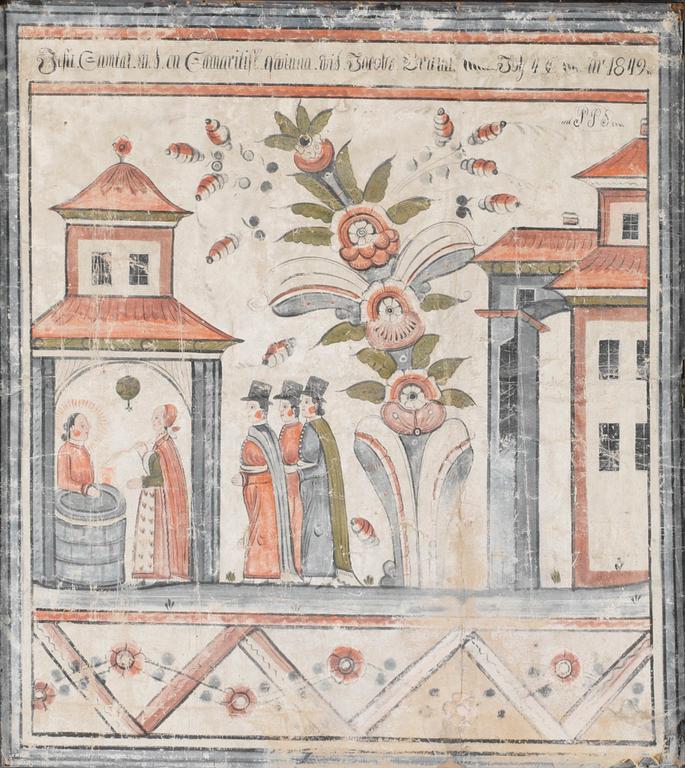 Jesu Samtal med en Samaritisk qwinna wid Jacobs Brunn Joh 4 C år 1849
PPS